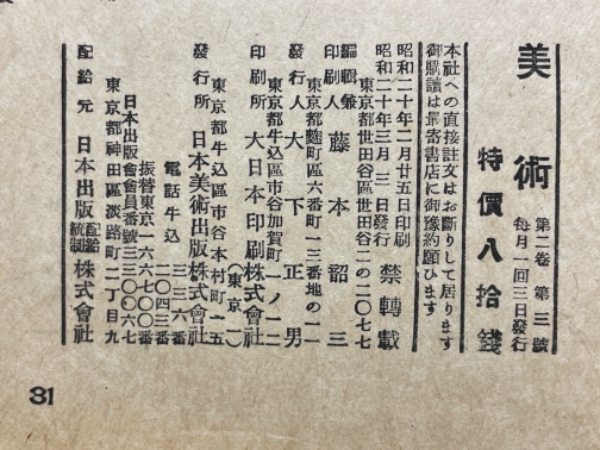 美術
第二卷 第三號
每月一回三日發行
特價八拾錢
本社への直接註文はお斷りして居ります
御購讀は最寄書店に御豫約願ひます
昭和二十年二月廿五日印刷
昭和二十年三月三日發行
禁轉載
東京都世田谷區世田谷二の二〇七七
編輯兼印刷人 藤本韶三
東京都麴町區六番町一三番地の一一
發行人 大下正男
東京都牛込區市谷加賀町一ノ一二
印刷所 大日本印刷株式會社
(東京一)
東京都牛込區市谷本村町一五
發行所 日本美術出版株式會社
電話牛込 三三六番
二〇四三番
振替東京一六六七〇〇番
日本出版會會員番號三三〇〇六七
東京都神田區淡路町二丁目九
配給元 日本出版配給統制株式會社
31